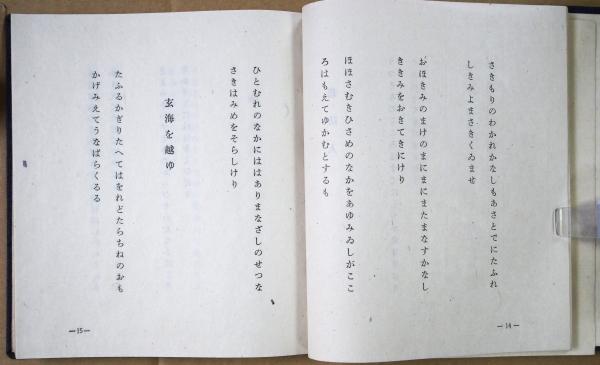 さきもりのわかれかなしもあさとでにたふれ
しきみよまさきくゐませ
おほきみのまけのまにまにまたまなすかなし
ききみをおきてきにけり
ほほさむきひさめのなかをあゆみゐしがここ
ろはもえてゆかむとするも
—14—
ひとむれのなかにははありまなざしのせつな
さきはみめをそらしけり
玄海を越ゆ
たふるかぎりたへてはをれどたらちねのおも
かげみえてうなばらくるる
—15—